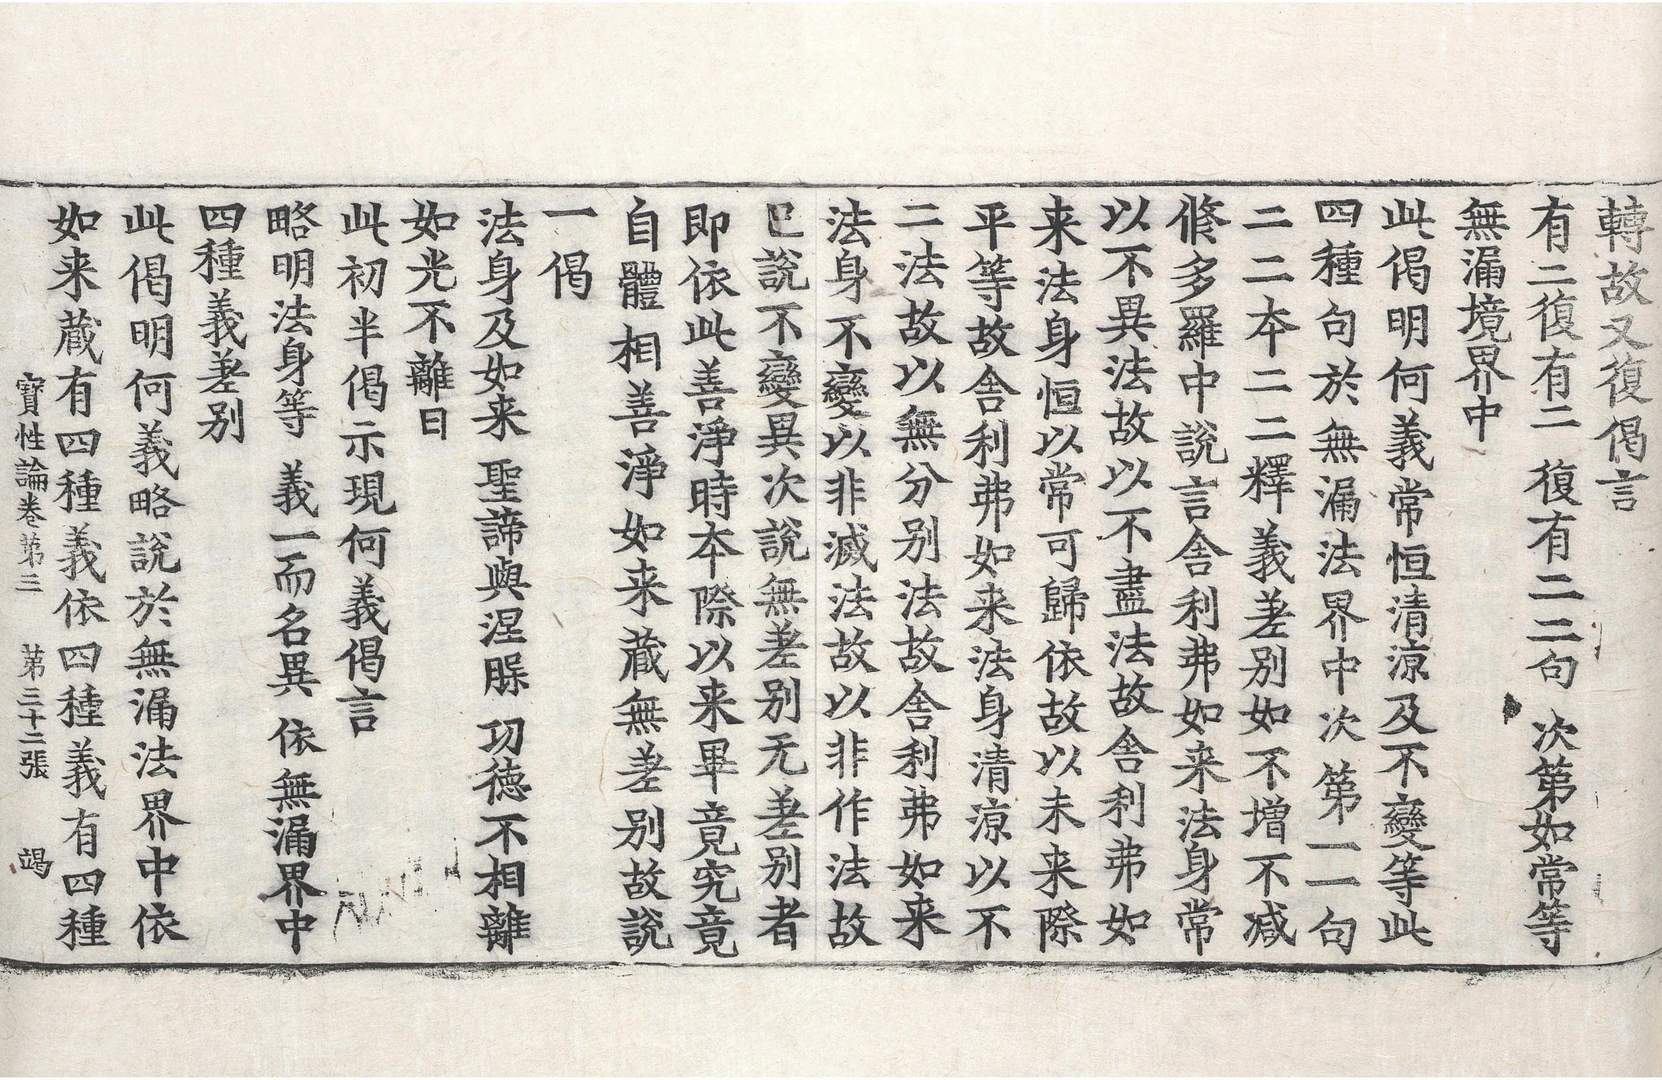 轉故又復偈言
有二復有二　復有二二句　次第如常等
無漏境界中
此偈明何義常恒清涼及不變等此
四種句於無漏法界中次第一一句
二二本二二釋義差別如不增不減
修多羅中說言舍利弗如来法身常
以不異法故以不盡法故舍利弗如
来法身恒以常可歸依故以未来際
平等故舍利弗如来法身清涼以不
二法故以無分别法故舍利弗如来
法身不變以非滅法故以非作法故
已說不變異次說無差别无差别者
即依此善淨時本際以来畢竟究竟
自體相善淨如来藏無差别故說
一偈
法身及如来　聖諦與涅槃　功德不相離
如光不離日
此初半偈示現何義偈言
略明法身等　義一而名異　依無漏界中
四種義差别
此偈明何義略說於無漏法界中依
如来藏有四種義依四種義有四種
寶性論卷第三　第三十二張　竭